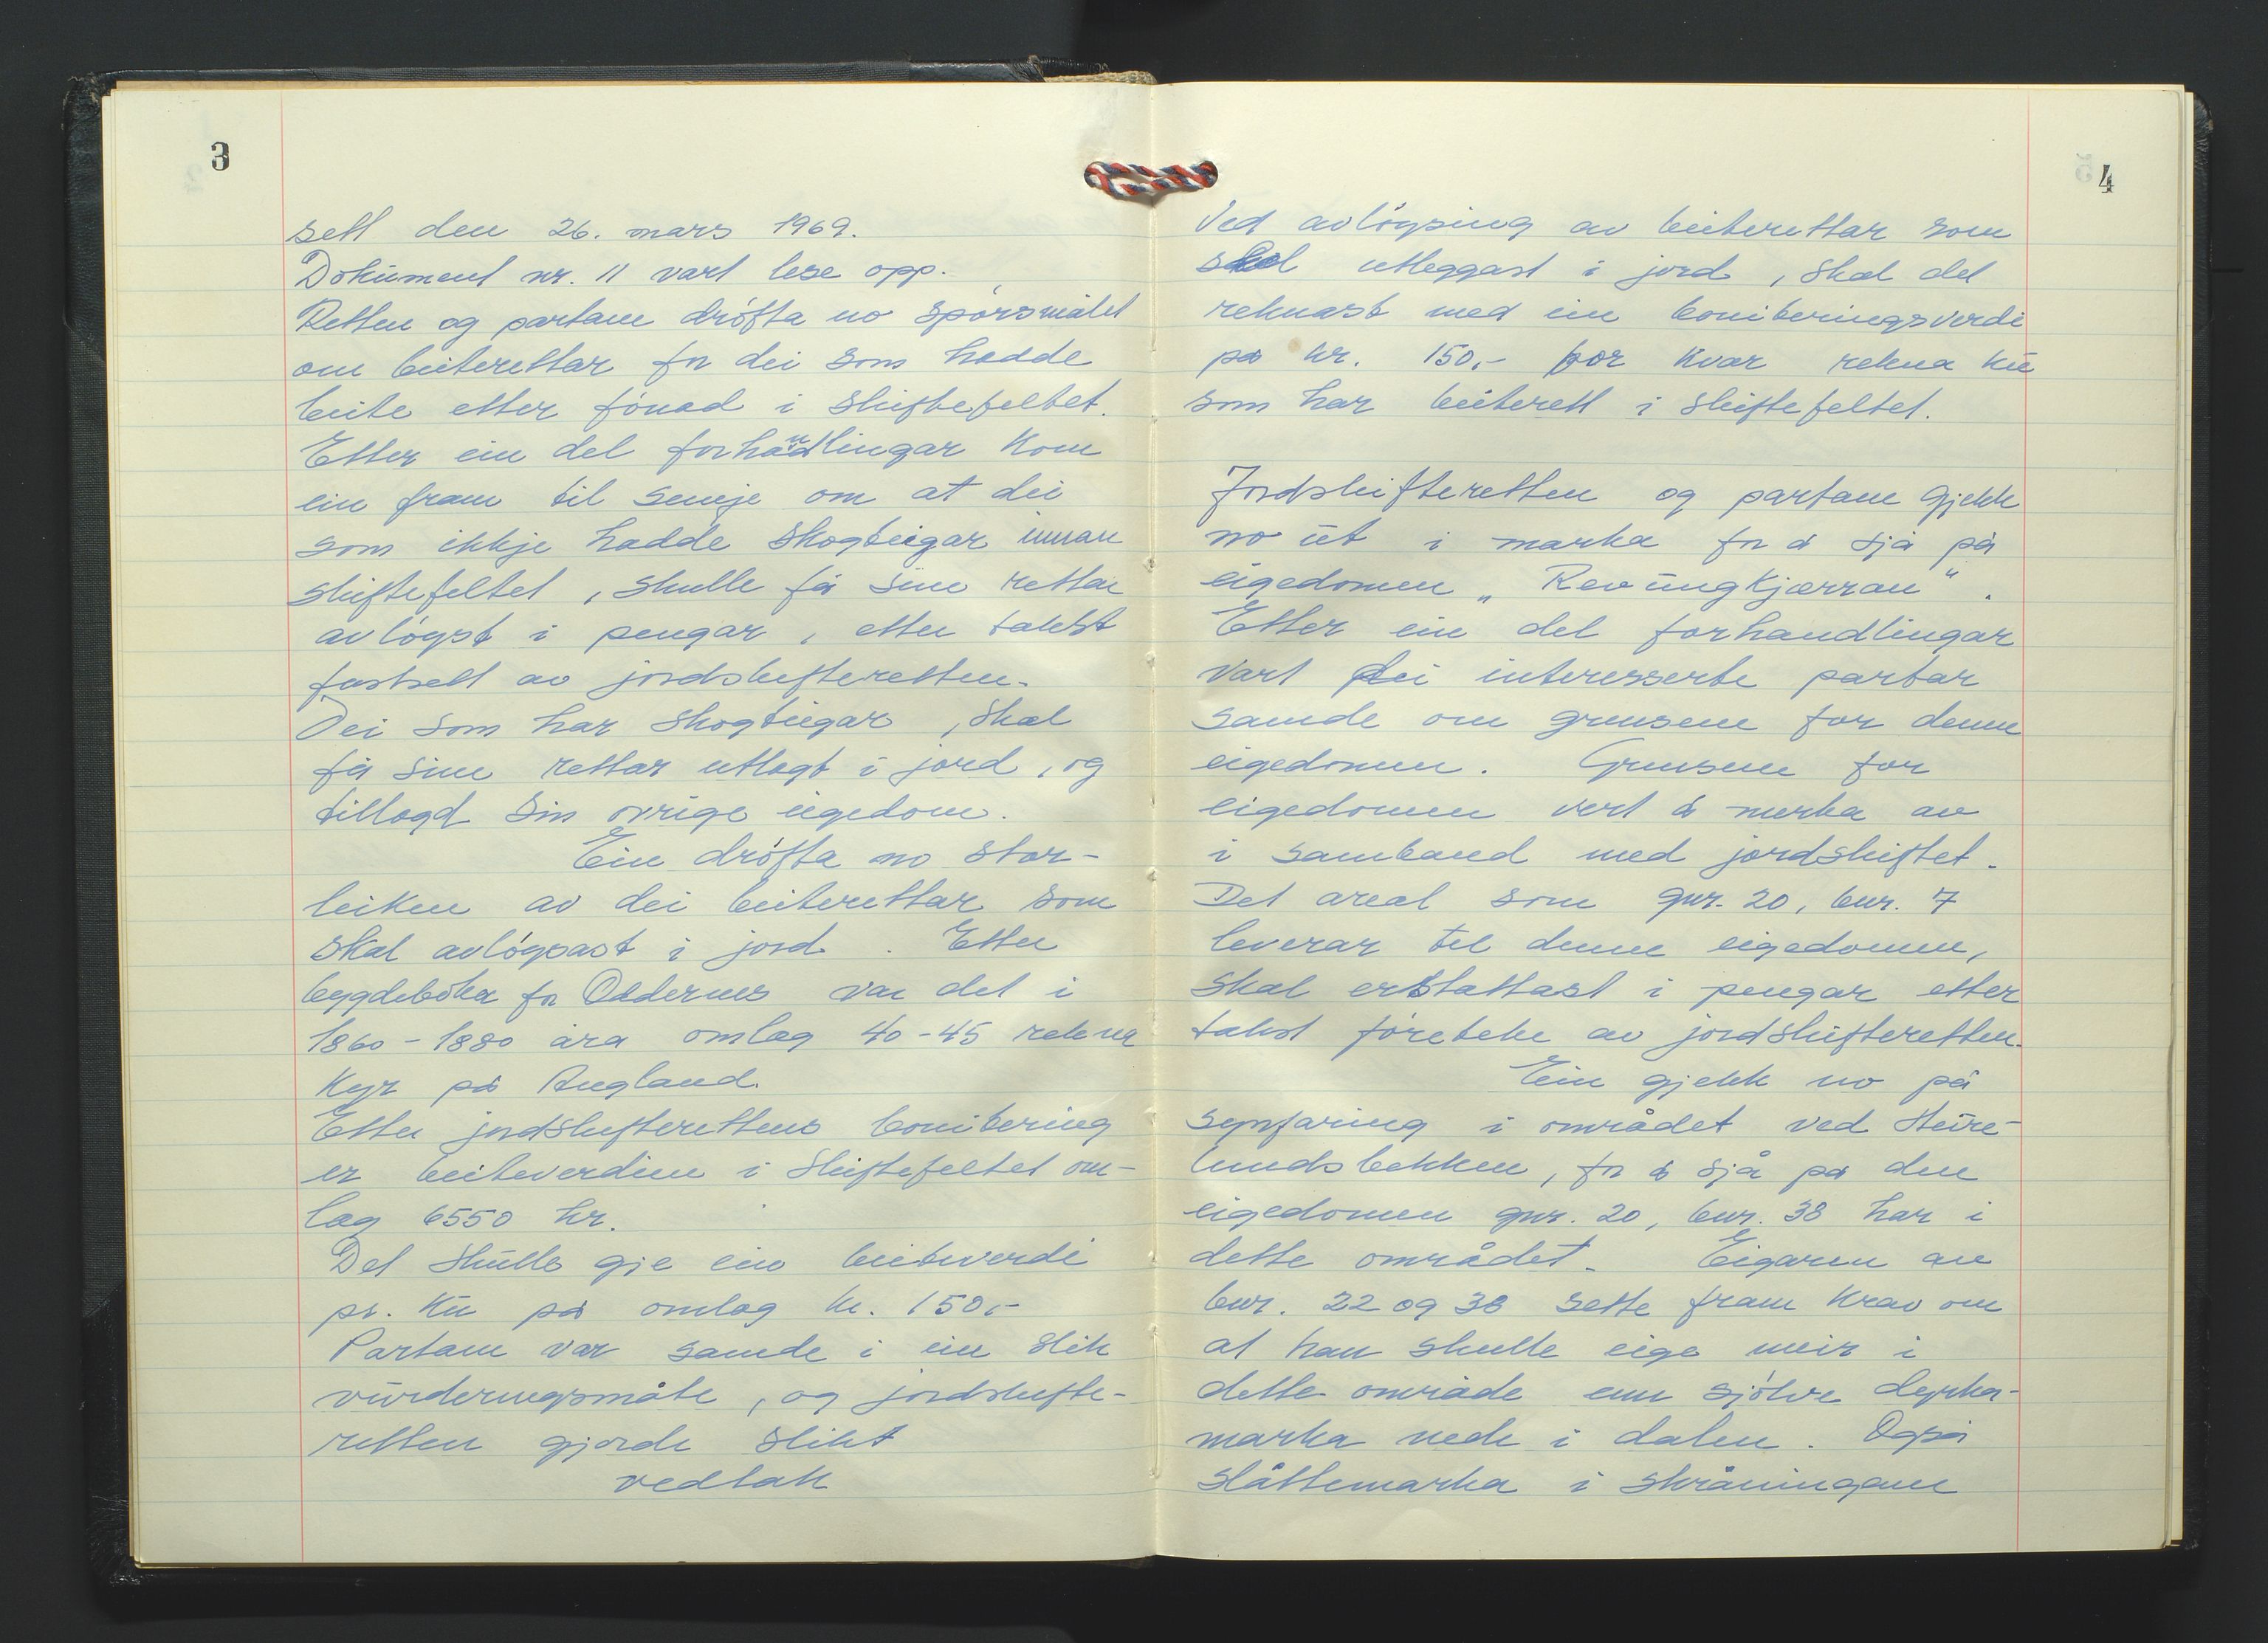 3
sett den 26. mars 1969.
Dokument nr. 11 vart lese opp.
Retten og partane drófta no spórsmålet
om beiterettar for dei som hadde
beite etter fónad i skiftefeltet.
Etter ein del forhandlingar kom
ein fram til semje om at dei
som ikkje hadde skogteigar innan
skiftefeltet, skulle få sine rettar
avlóyst i pengar, etter takst
fastsett av jordskifteretten.
Dei som har skogteigar, skal
få sine rettar utlagt i jord, og
tillagd sin ovrige eigedom.
Ein drófta no stor-
leiken av dei beiterettar som
skal avlóysast i jord. Etter
bygdebóka for Oddernes var det i
1860-1880 åra omlag 40-45 rekna
kyr på Augland.
Etter jordskifterettens bonitering
er beiteverdien i skiftefeltet om-
lag 6550 kr.
Det skulle gje ein beiteverdi
pr. ku på omlag kr. 150,-
Partane var samde i ein slik
vurderingsmåte, og jordskifte-
retten gjorde slikt
vedtak
4
Ved avlóysing av beiterettar som
skal utleggast i jord, skal det
reknast med ein boniteringsverdi
på kr. 150,- for kvar rekna ku
som har beiterett i skiftefeltet.
Jordskifteretten og partane gjekk
no ut i marka for å sjå på
eigedomen „Revungkjærran".
Etter ein del forhandlingar
vart dei interesserte partar
samde om grensene for denne
eigedomen. Grensene for
eigedomen vert å merka av
i samband med jordskiftet.
Det areal som gnr. 20, bnr. 7
leverar til denne eigedomen,
skal erstattast i pengar etter
takst fóreteke av jordskifteretten.
Ein gjekk no på
synfaring i området ved Sture-
lundsbekken, for å sjå på den
eigedomen gnr. 20, bnr. 38 har i
dette området. Eigaren av
bnr. 22 og 38 sette fram krav om
at han skulle eige meir i
dette område enn sjólve dyrka-
marka nede i dalen. Også
slåttemarka i skråningane